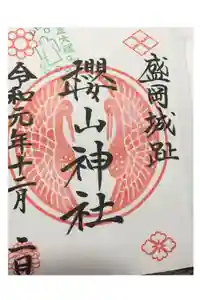 盛岡城趾
櫻山神社
令和元年十二月二日